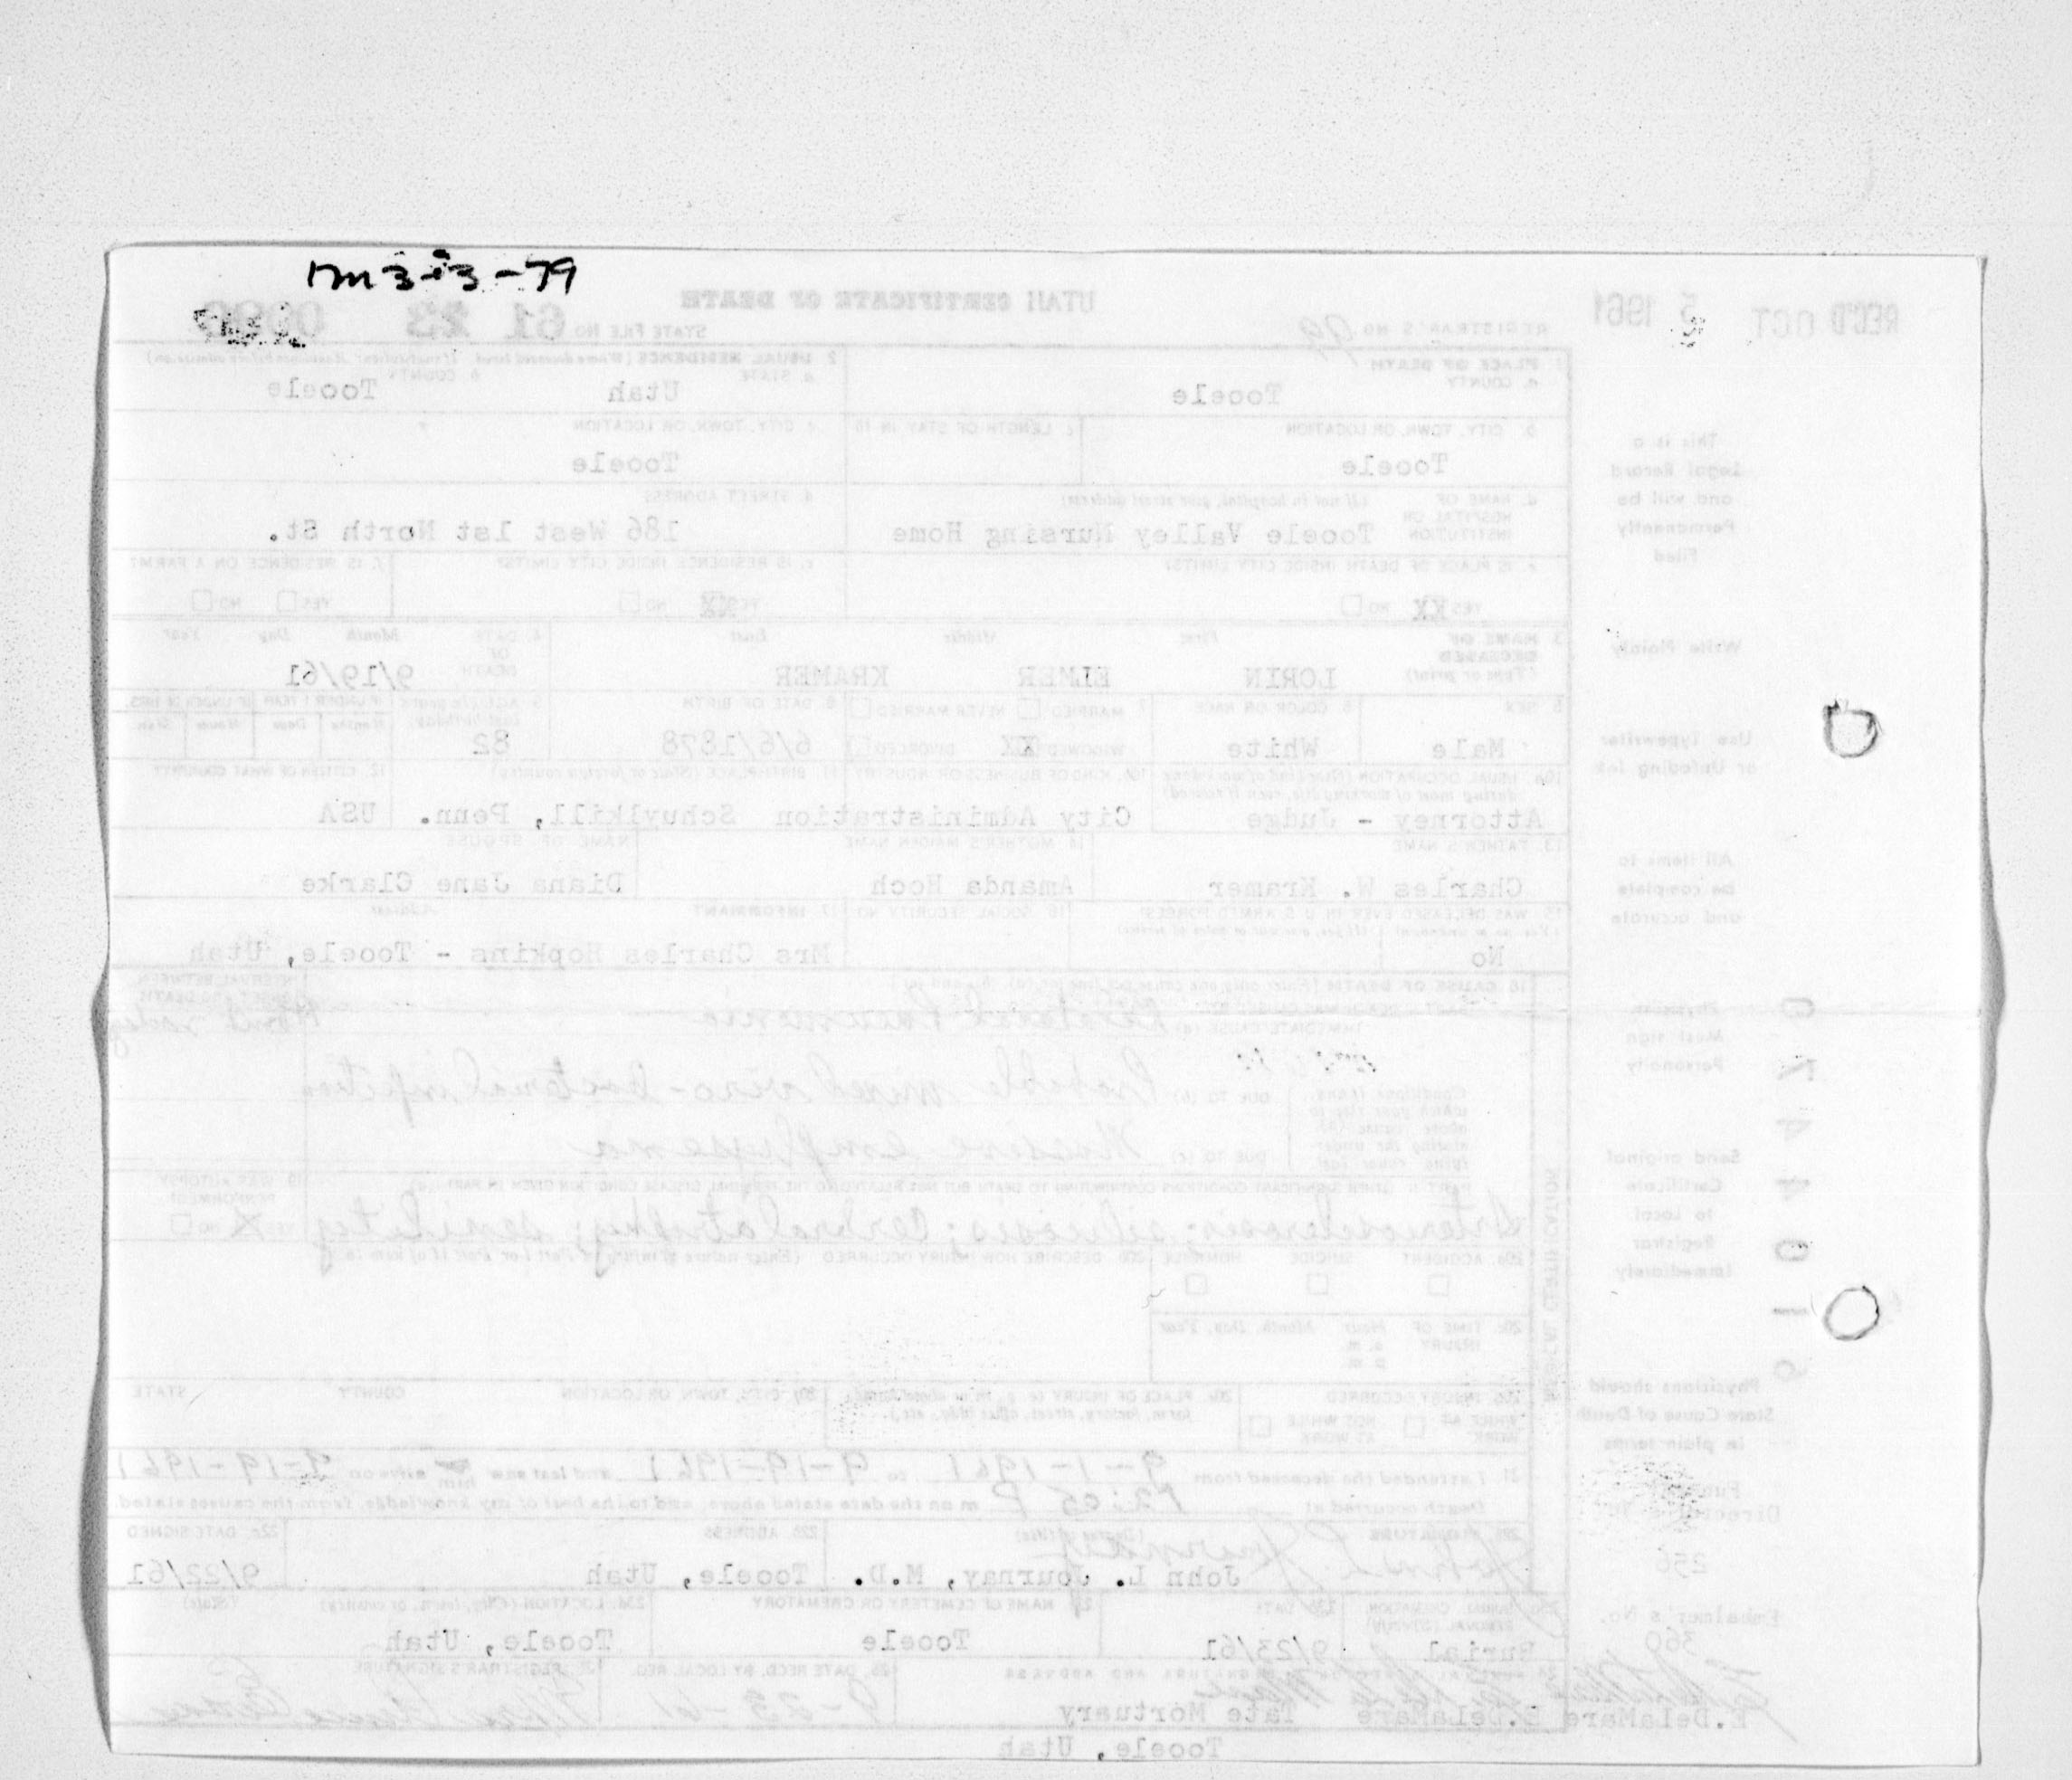 1m 3-13-79
REC'D OCT 5 1961
UTAH CERTIFICATE OF DEATH
REGISTRAR'S NO. 99
STATE FILE NO. 61 23
1. PLACE OF DEATH
a. COUNTY
Tooele
2. USUAL RESIDENCE
a. STATE
Utah
b. COUNTY
Tooele
b. CITY, TOWN, OR LOCATION
Tooele
c. LENGTH OF STAY IN 1b
c. CITY, TOWN, OR LOCATION
Tooele
d. NAME OF HOSPITAL OR INSTITUTION (If not in hospital, give street address)
Tooele Valley Nursing Home
d. STREET ADDRESS
186 West 1st North St.
e. IS PLACE OF DEATH INSIDE CITY LIMITS?
YES XX NO
e. IS RESIDENCE INSIDE CITY LIMITS?
YES XX NO
f. IS RESIDENCE ON A FARM?
YES NO
3. NAME OF DECEASED (Type or print)
First Middle Last
LORIN ELMER KRAMER
4. DATE OF DEATH
Month Day Year
9/19/61
5. SEX
Male
6. COLOR OR RACE
White
7. MARRIED NEVER MARRIED
WIDOWED XX DIVORCED
8. DATE OF BIRTH
6/6/1878
9. AGE (In years last birthday)
82
IF UNDER 1 YEAR IF UNDER 24 HRS.
Months Days Hours Min.
10a. USUAL OCCUPATION (Give kind of work done during most of working life, even if retired)
Attorney - Judge
10b. KIND OF BUSINESS OR INDUSTRY
City Administration
11. BIRTHPLACE (State or foreign country)
Schuylkill, Penn.
12. CITIZEN OF WHAT COUNTRY?
USA
13. FATHER'S NAME
Charles W. Kramer
14. MOTHER'S MAIDEN NAME
Amanda Hoch
NAME OF SPOUSE
Diana Jane Clarke
15. WAS DECEASED EVER IN U. S. ARMED FORCES?
No
16. SOCIAL SECURITY NO.
17. INFORMANT Address
Mrs Charles Hopkins - Tooele, Utah
18. CAUSE OF DEATH
INTERVAL BETWEEN ONSET AND DEATH
IMMEDIATE CAUSE (a)
Pneumonia
Conditions, if any, which gave rise to above cause (a), stating the under-lying cause last
DUE TO (b) Probable mixed viro-bacterial infection
DUE TO (c) Massive emphysema
PART II. OTHER SIGNIFICANT CONDITIONS CONTRIBUTING TO DEATH BUT NOT RELATED TO THE TERMINAL DISEASE CONDITION GIVEN IN PART I(a)
Arteriosclerosis; silicosis; cerebral atrophy; senility
19. WAS AUTOPSY PERFORMED?
YES X NO
20a. ACCIDENT SUICIDE HOMICIDE
20b. DESCRIBE HOW INJURY OCCURRED (Enter nature of injury in Part I or Part II of item 18.)
20c. TIME OF INJURY Hour Month, Day, Year
a. m.
p. m.
20d. INJURY OCCURRED
WHILE AT WORK NOT WHILE AT WORK
20e. PLACE OF INJURY (e. g., in or about home, farm, factory, street, office bldg., etc.)
20f. CITY, TOWN, OR LOCATION COUNTY STATE
21. I attended the deceased from 9-1-1961 to 9-19-1961 and last saw him alive on 9-19-1961
Death occurred at P m on the date stated above, and to the best of my knowledge, from the causes stated.
22a. SIGNATURE (Degree or title)
John L. Journay, M.D.
22b. ADDRESS
Tooele, Utah
22c. DATE SIGNED
9/22/61
23a. BURIAL, CREMATION, REMOVAL (Specify)
Burial
23b. DATE
9/23/61
23c. NAME OF CEMETERY OR CREMATORY
Tooele
23d. LOCATION (City, town, or county) (State)
Tooele, Utah
E.DeLaMare E.DeLaMare Tate Mortuary
Tooele, Utah
DATE RECD. BY LOCAL REG.
9-23-61
REGISTRAR'S SIGNATURE
This is a
Legal Record
and will be
Permanently
Filed
Write Plainly
Use Typewriter
or Unfading Ink
All items to
be complete
and accurate
Physician
Must sign
Personally
Send original
Certificate
to Local
Registrar
Immediately
Physicians should
State Cause of Death
in plain terms
Funeral
Director's No.
256
Embalmer's No.
360
MEDICAL CERTIFICATION